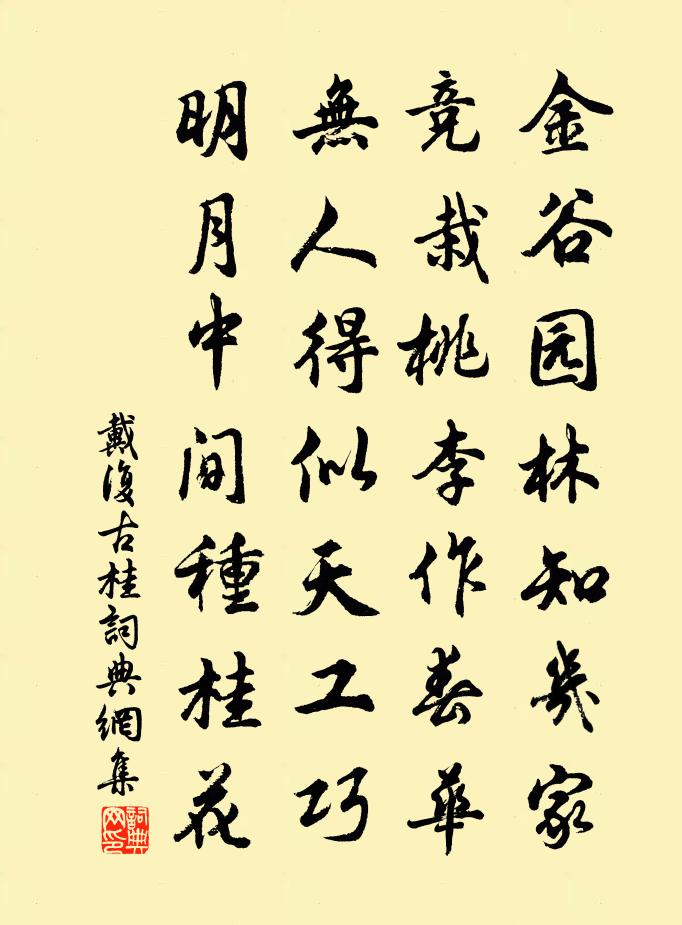 金谷园林知幾家
竞栽桃李作春華
無人得似天工巧
明月中间種桂花
戴復古桂詞典網集
詞典网印